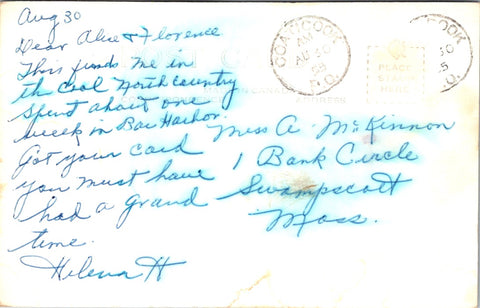 Aug 30
Dear Alice & Florence
This finds me in
the cool north country
spent about one
week in Bar Harbor.
Got your card
you must have
had a grand
time.
Helena H
Miss A. McKinnon
1 Bank Circle
Swampscott
Mass.
COATICOOK
AM
AU 30
P.Q.
PLACE
STAMP
HERE
ADDRESS
COOK
30
P.Q.